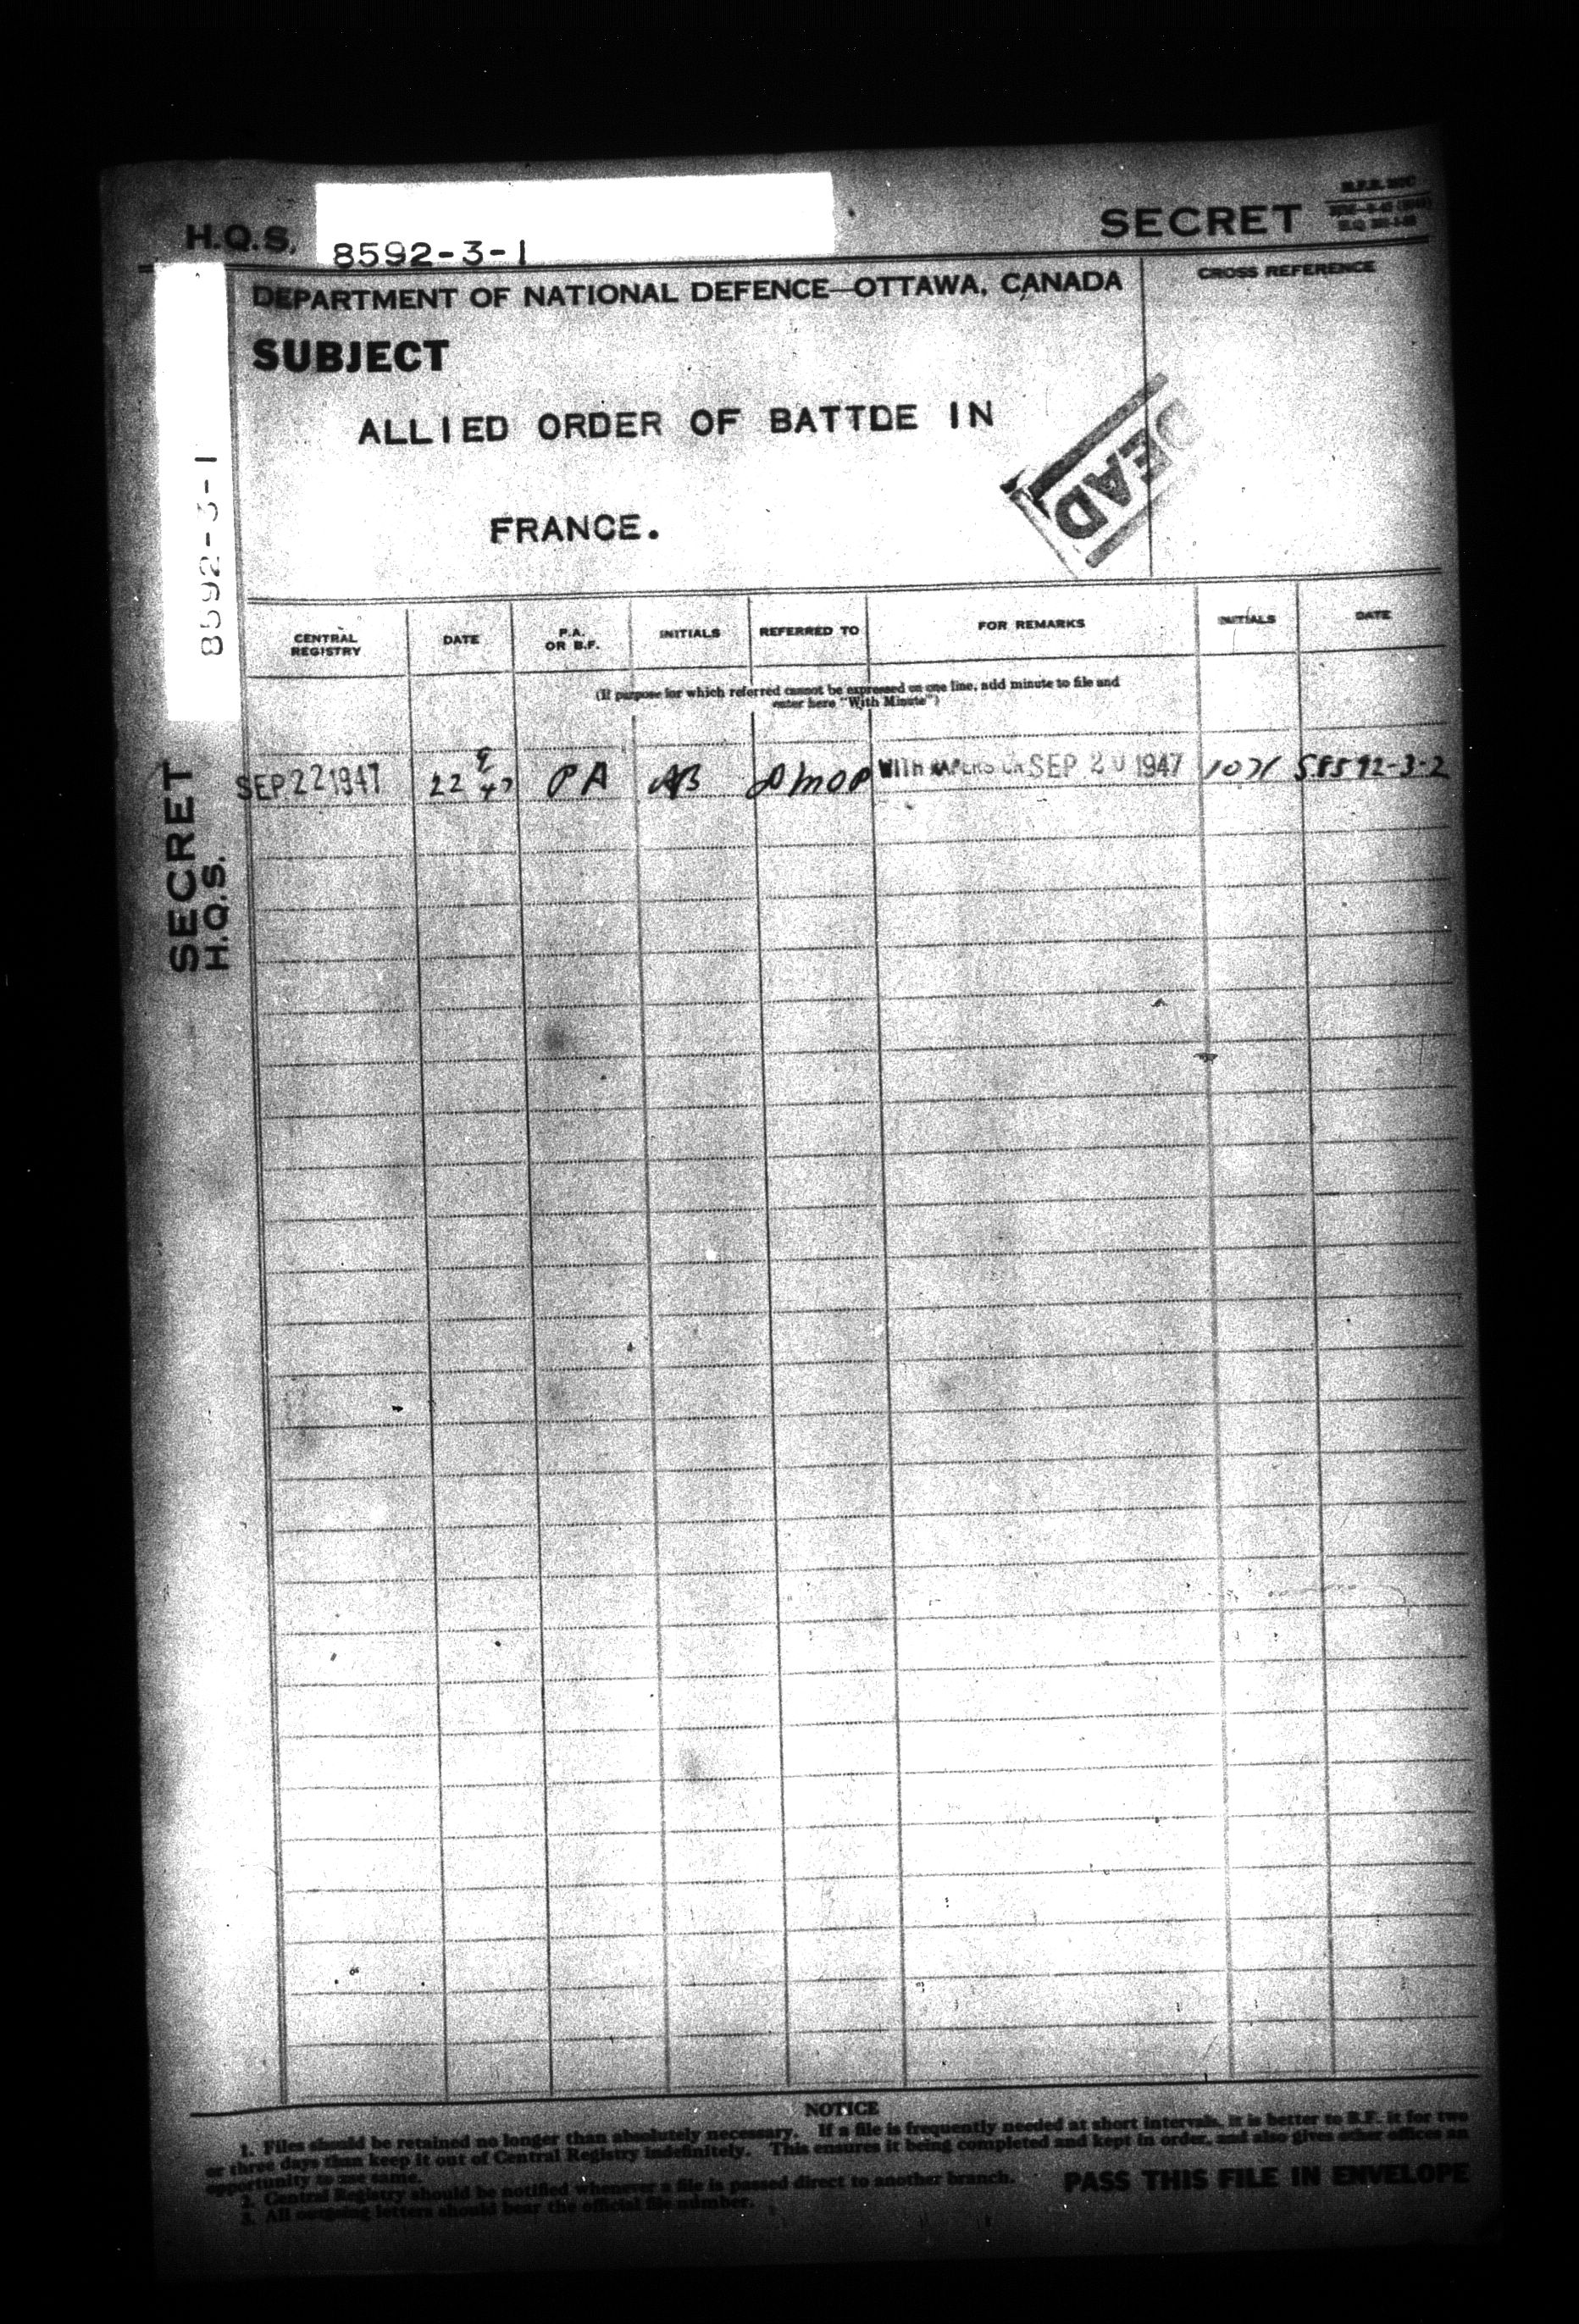 H.Q.S. 8592-3-1
SECRET
DEPARTMENT OF NATIONAL DEFENCE—OTTAWA, CANADA
CROSS REFERENCE
SUBJECT
ALLIED ORDER OF BATTLE IN
FRANCE.
DEAD
8592-3-1
SECRET
H.Q.S.
CENTRAL REGISTRY DATE P.A. OR B.F. INITIALS REFERRED TO FOR REMARKS INITIALS DATE
(If purpose for which referred cannot be expressed on one line, add minute to file and
enter here "With Minute")
SEP 22 1947 22 9 47 PA AB DMOP WITH PAPERS ON SEP 20 1947 S8592-3-2
NOTICE
1. Files should be retained no longer than absolutely necessary. If a file is frequently needed at short intervals, it is better to B.F. it for two
or three days than keep it out of Central Registry indefinitely. This ensures it being completed and kept in order, and also gives other offices an
opportunity to use same.
2. Central Registry should be notified whenever a file is passed direct to another branch.
3. All outgoing letters should bear the official file number.
PASS THIS FILE IN ENVELOPE